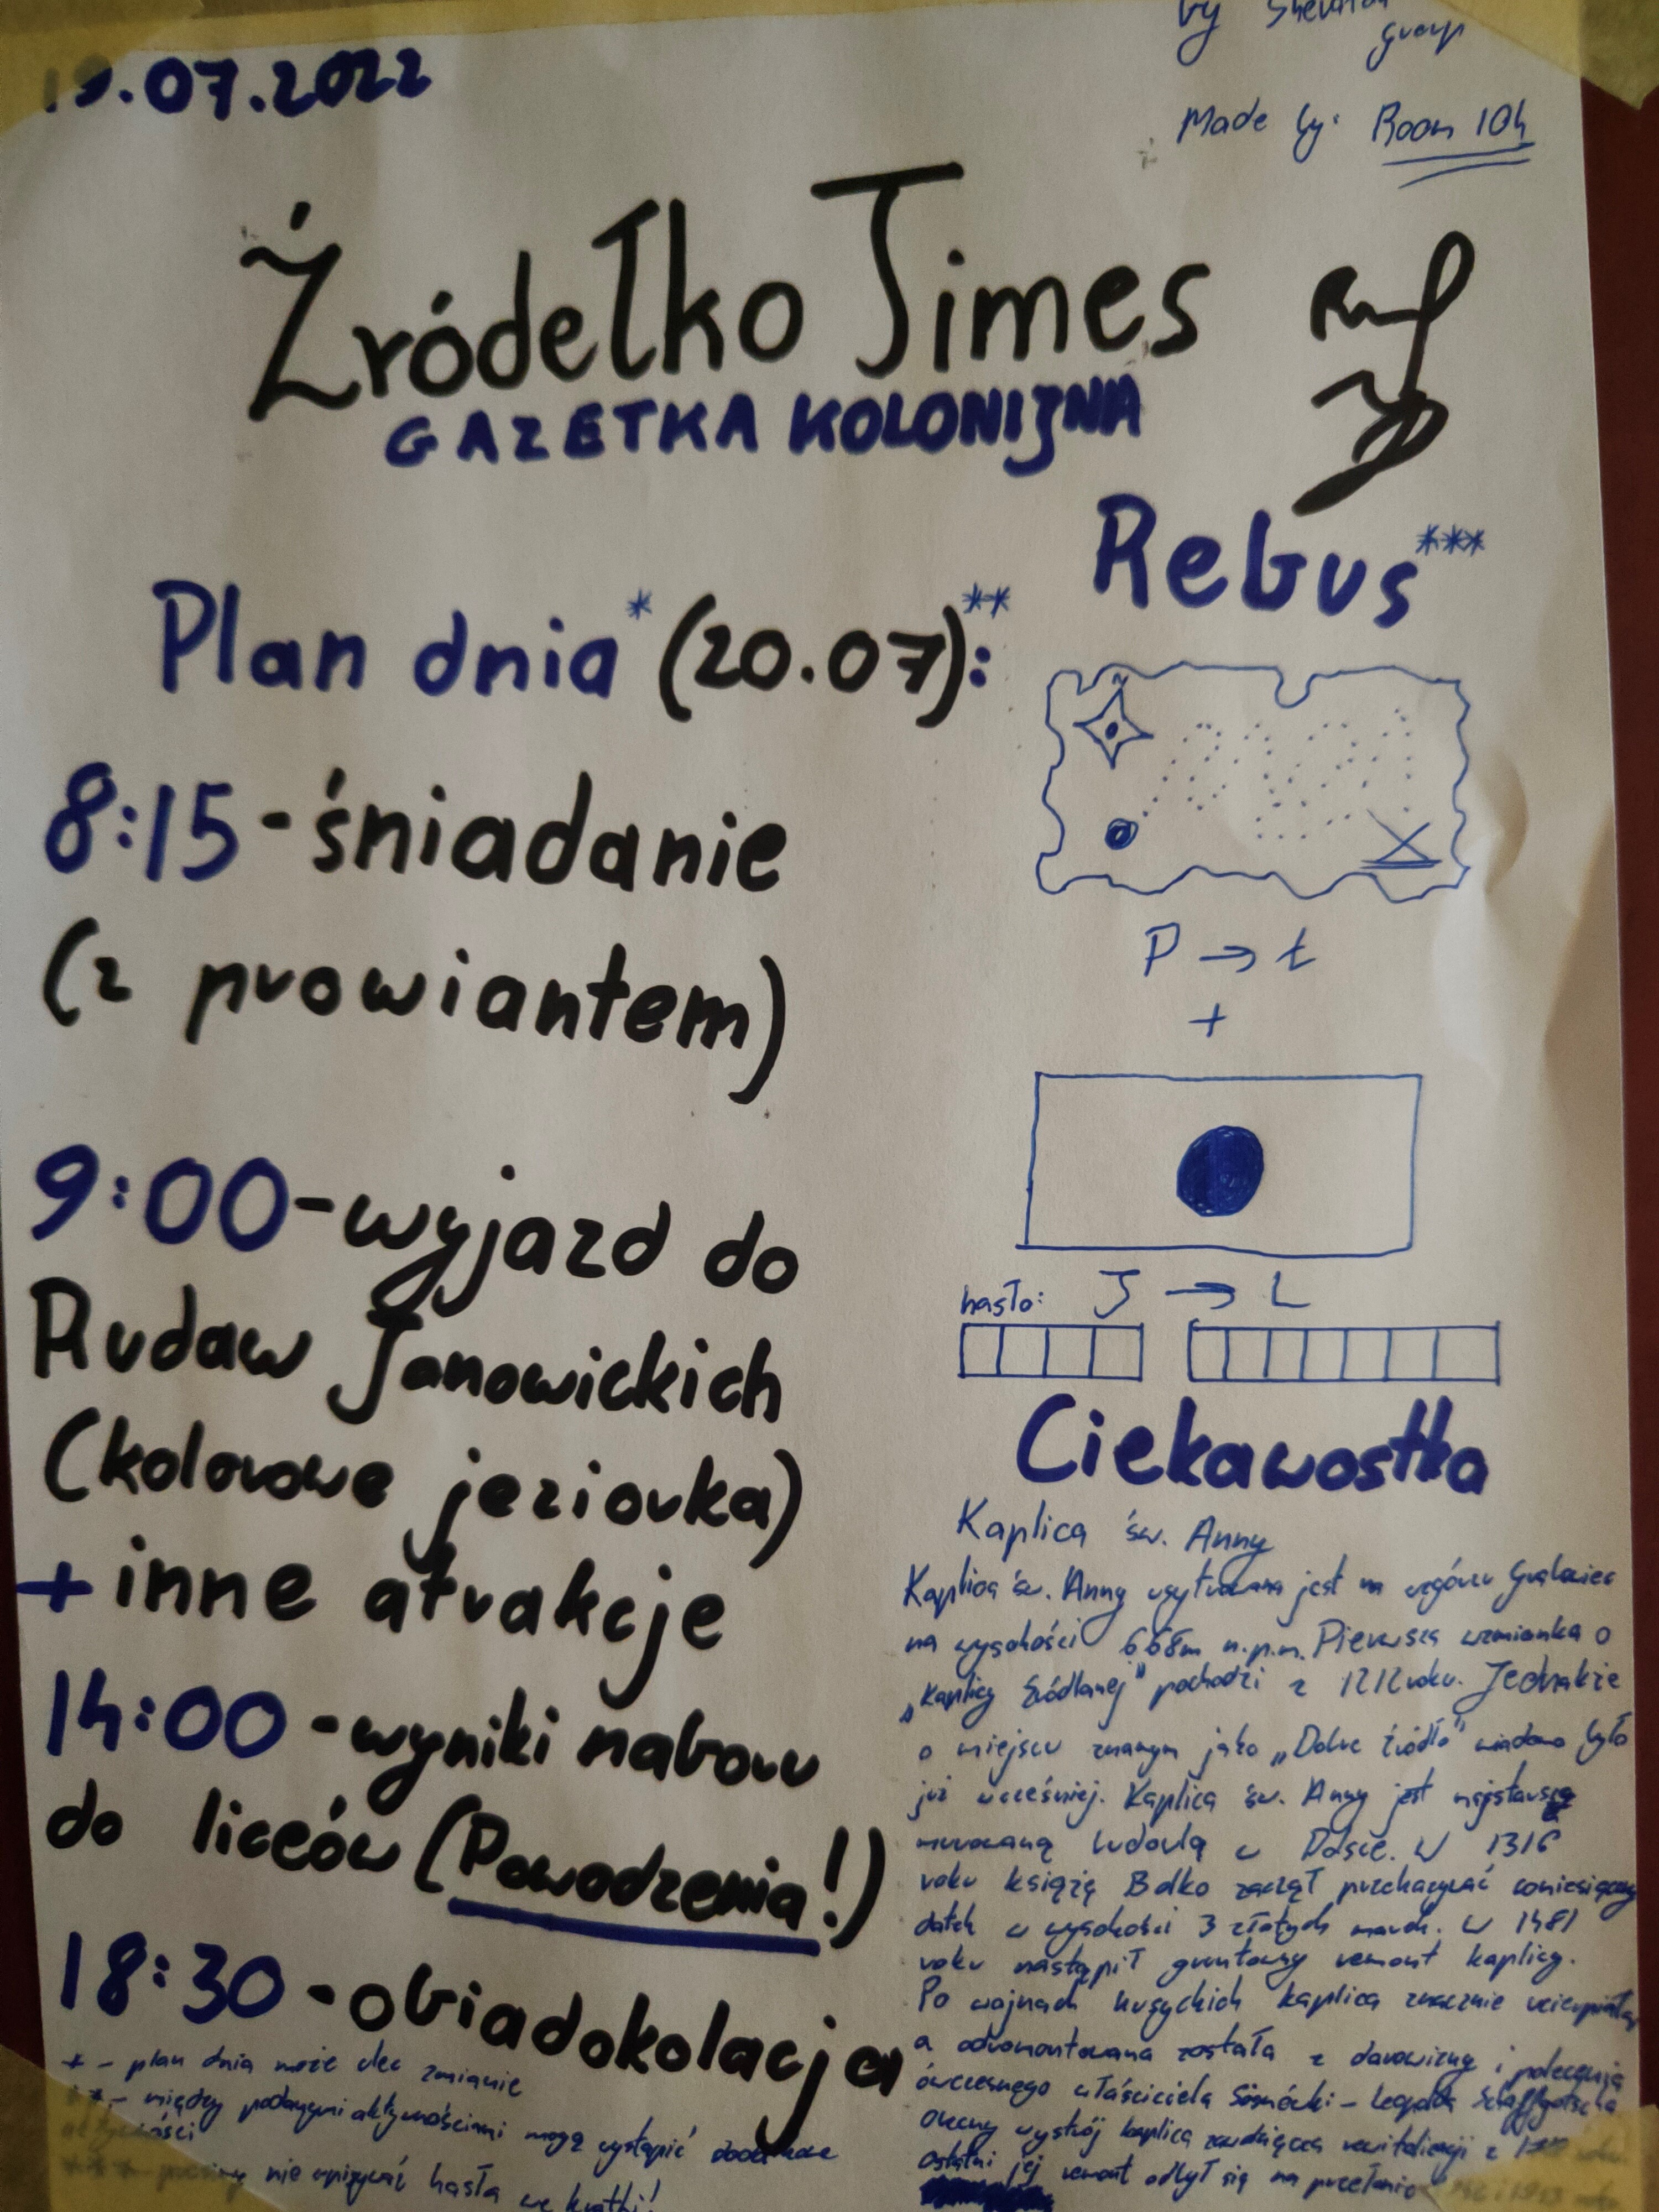 .07.2022
by
group
Made by: Room 104
Źródełko Times
GAZETKA KOLONIJNA
Plan dnia* (20.07)**:
8:15 - śniadanie
(z prowiantem)
9:00 - wyjazd do
Rudaw Janowickich
(kolorowe jeziorka)
+ inne atrakcje
14:00 - wyniki naboru
do liceów (Powodzenia!)
18:30 - obiadokolacja
* - plan dnia może ulec zmianie
** - między podanymi aktywnościami mogą wystąpić dodatkowe
aktywności
*** - prosimy nie wpisywać hasła we kratki!
Rebus***
P → t
+
hasło: J → L
Ciekawostka
Kaplica św. Anny
Kaplica św. Anny usytuowana jest na wzgórzu Grabowiec
na wysokości 668m n.p.m. Pierwsza wzmianka o
„Kaplicy Źródlanej" pochodzi z 1212 roku. Jednakże
o miejscu znanym jako „Dobre źródło" wiadomo było
już wcześniej. Kaplica św. Anny jest najstarszą
murowaną budowlą w Polsce. W 1316
roku książę Bolko zaczął przekazywać comiesięczny
datek w wysokości 3 złotych marek. W 1481
roku nastąpił gruntowny remont kaplicy.
Po wojnach husyckich kaplica znacznie ucierpiała,
a odremontowana została z darowizny i polecenia
ówczesnego właściciela Sosnówki - Leopolda Schaffgotscha
Obecny wystrój kaplica zawdzięcza rewitalizacji z
Ostatni jej remont odbył się na przełomie